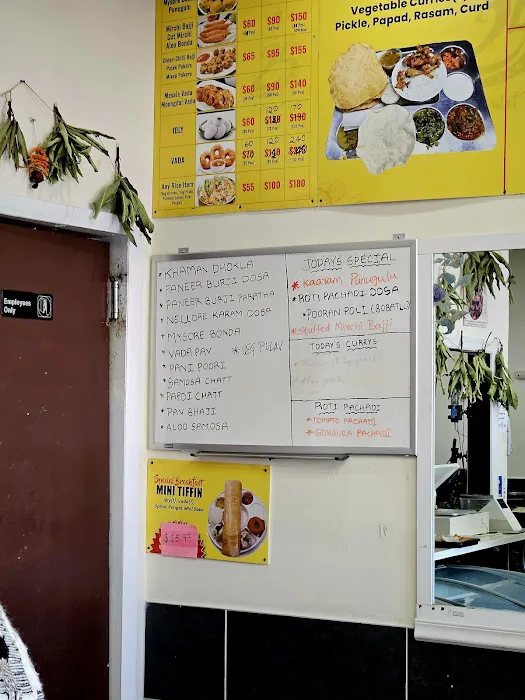 Mysore Bonda
Punugulu
Mirchi Bajji
Cut Mirchi
Aloo Bonda
$60 $90 $150
Onion-Chilli Bajji
Palak Pakora
Mixed Pakora
$65 $95 $155
Masala Vada
Moongdal Vada
$60 $90 $140
IDLY
120 170
$60
VADA
60 120 240
Any Rice Item
$55 $100 $180
Vegetable Curries
Pickle, Papad, Rasam, Curd
Employees
Only
* KHAMAN DHOKLA
* PANEER BURJI DOSA
* PANEER BURJI PARATHA
* NELLORE KARAM DOSA
* MYSORE BONDA
* VADA PAV
* VEG PULAV
* PANI POORI
* SAMOSA CHATT
* PAPDI CHATT
* PAV BHAJI
* ALOO SAMOSA
TODAY'S SPECIAL
* Kaaram Punugulu
* ROTI PACHADI DOSA
* POORAN POLI (BOBATLU)
* Stuffed Mirchi Bajji
TODAY'S CURRYS
ROTI PACHADI
* TOMATO PACHADI
* GONGURA PACHADI
Special Breakfast
MINI TIFFIN
$15.99